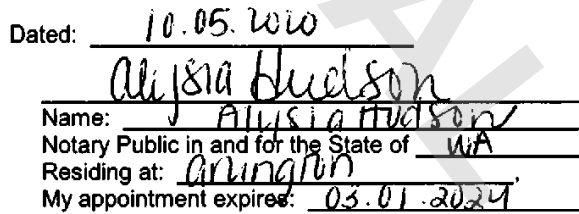 Dated: 10.05.2020
Alysia Hudson
Name: Alysia Hudson
Notary Public in and for the State of WA
Residing at: Arlington,
My appointment expires: 03.01.2024